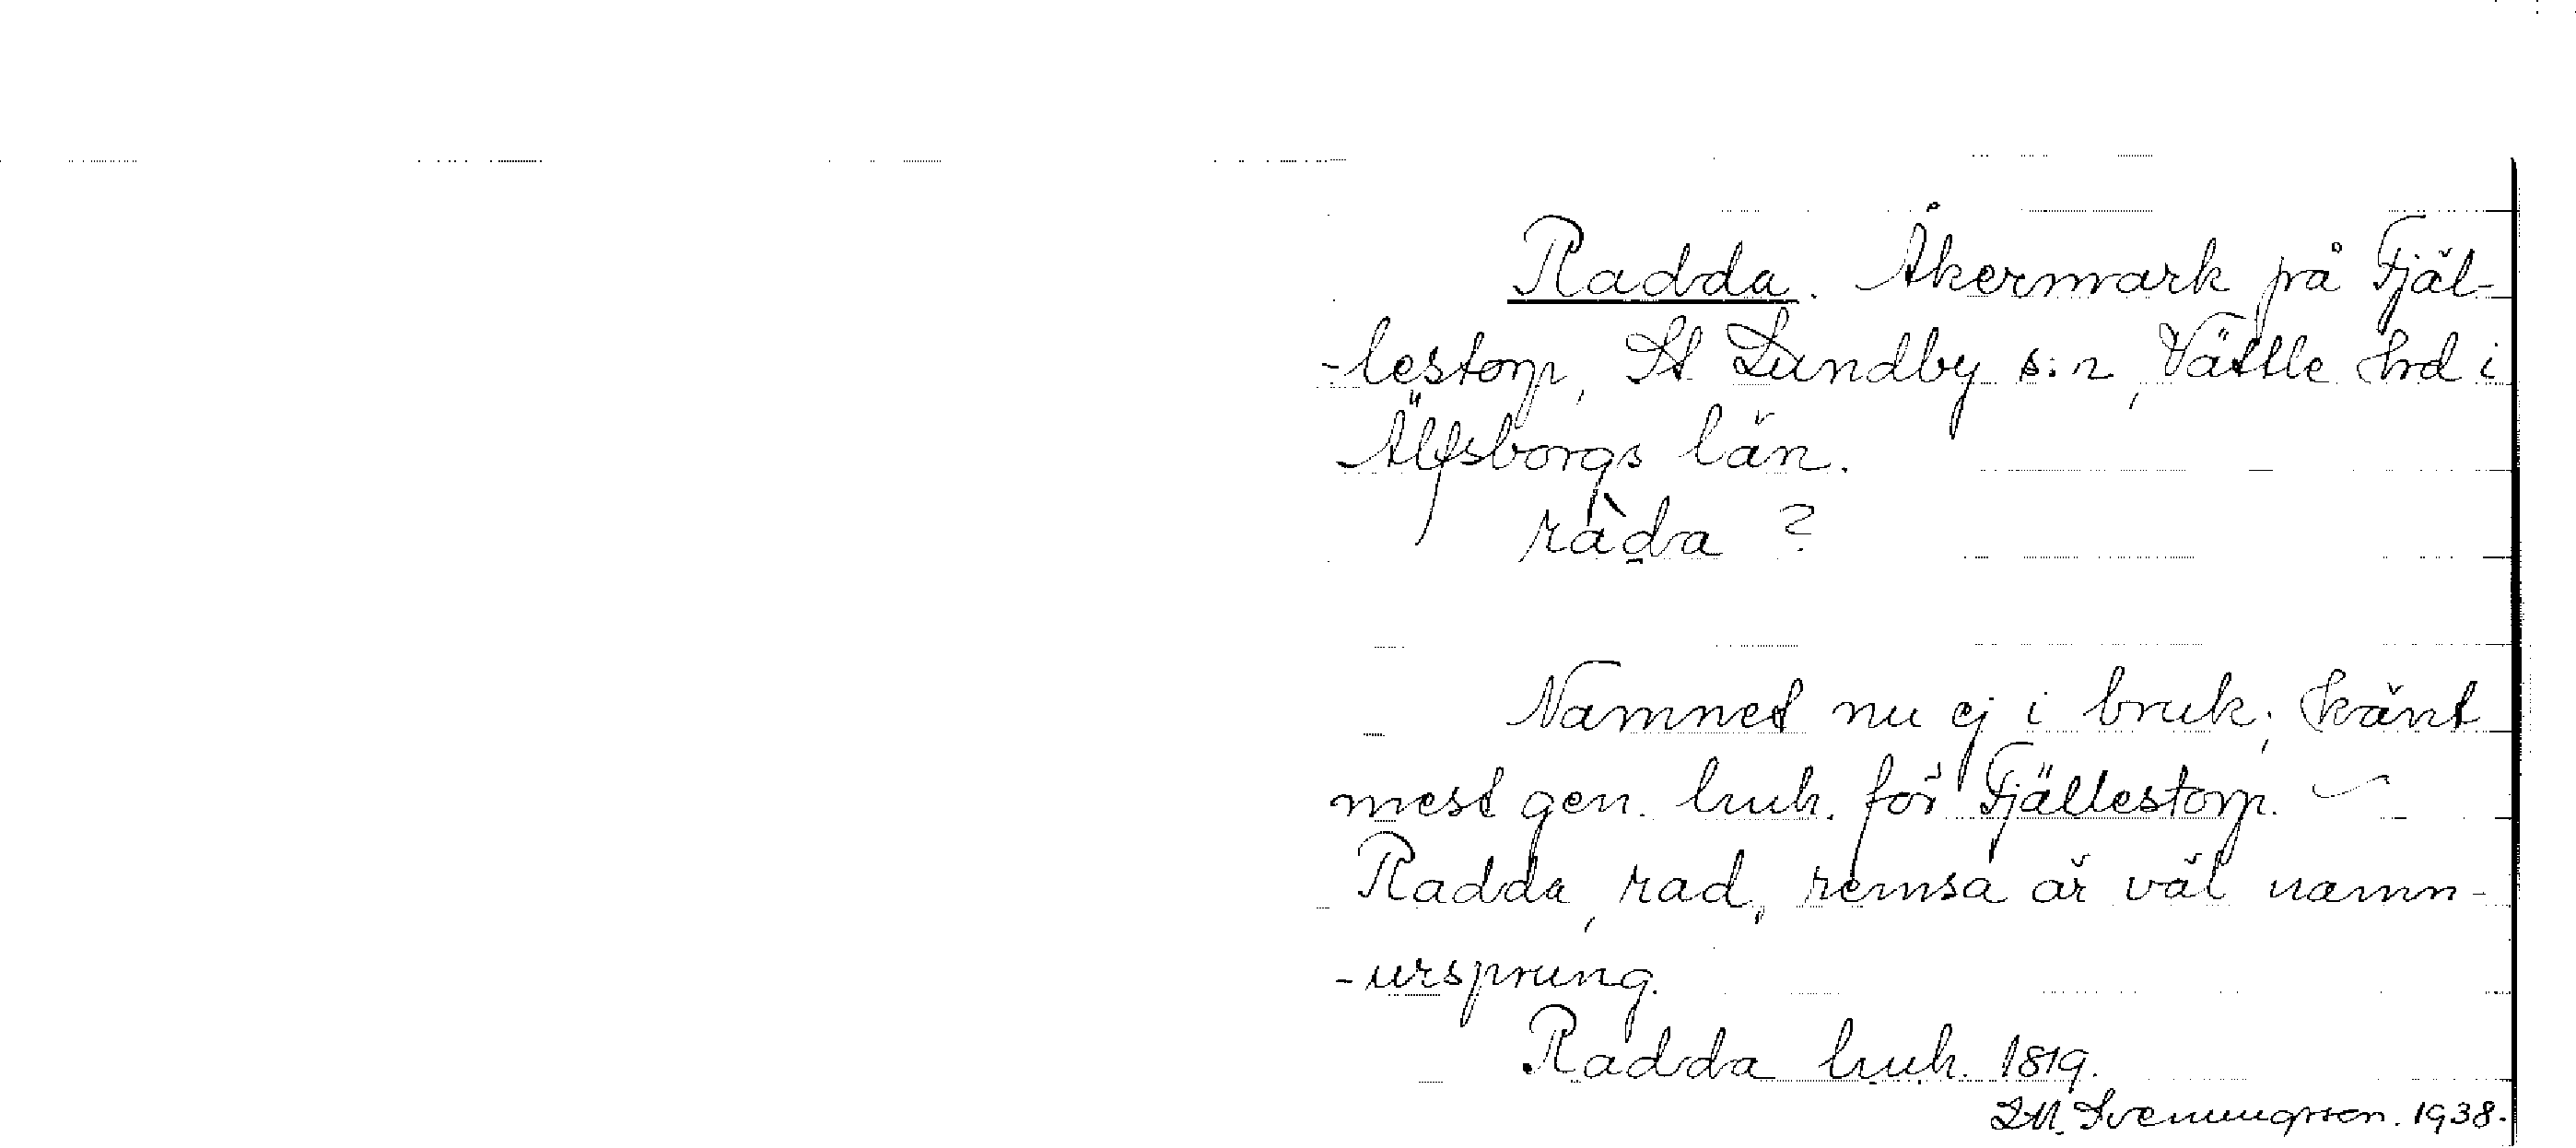 Radda. Åkermark på Fjäl-
-lestorp, St. Lundby s:n, Vättle hd i
Älfsborgs län.
ràda ?
Namnet nu ej i bruk; känt
mest gen. huh. för Fjällestorp.
Radda, rad, remsa är väl namn-
-ursprung.
Radda huh. 1819.
Svenungsson. 1938.